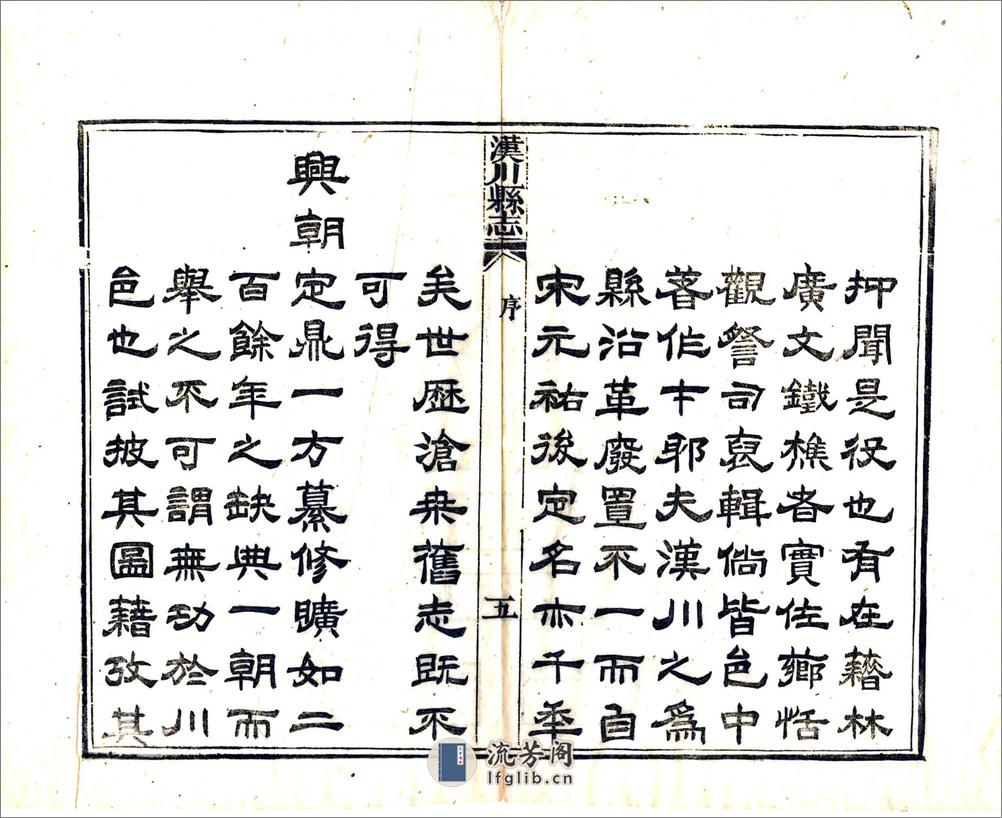 抑聞是役也有在籍林
廣文鐵樵者實佐薌恬
觀詧司裒輯倘皆邑中
著作才耶夫漢川之為
縣沿革廢置不一而自
宋元祐後定名亦千年
漢川縣志
序
五
矣世歷滄桑舊志既不
可得
興朝定鼎一方纂修曠如二
百餘年之缺典一朝而
舉之不可謂無功於川
邑也試披其圖籍攷其
流芳阁
lfglib.cn